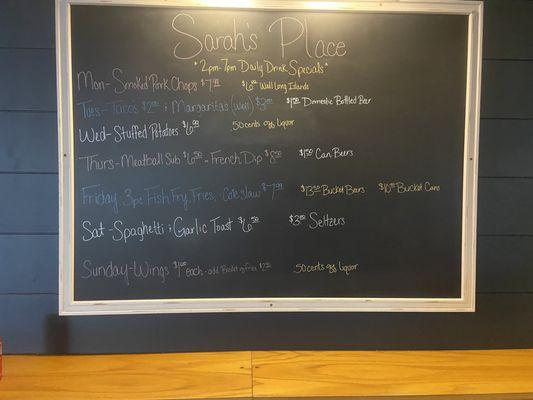 Sarah's Place
*2pm-7pm Daily Drink Specials*
Mon- Smoked Pork Chops $7.00 $6.00 Well Long Islands
Tues-Tacos $2.00 & Margaritas (Well) $3.00 $1.50 Domestic Bottled Bar
Wed-Stuffed Potatoes $6.00 50 cents off Liquor
Thurs-Meatball Sub $6.50 - French Dip $8.50 $1.50 Can Beers
Friday 3pc Fish Fry, Fries, Coleslaw $7.00 $13.50 Bucket Bars $10.00 Bucket Cans
Sat-Spaghetti & Garlic Toast $6.50 $3.00 Seltzers
Sunday-Wings each-add Basket of Fries 50 cents off liquor